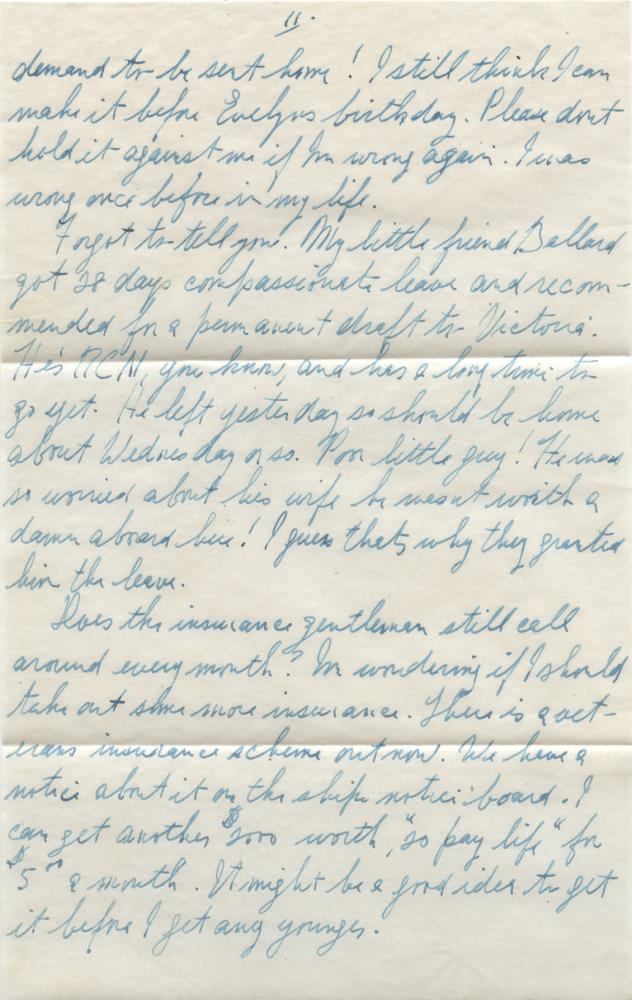 11.
demand to be sent home! I still think I can
make it before Evelyns birthday. Please dont
hold it against me if Im wrong again. I was
wrong once before in my life.
Forgot to tell you. My little friend Ballard
got 28 days compassionate leave and recom-
mended for a permanent draft to Victoria.
He's RCN, you know, and has a long time to
go yet. He left yesterday so should be home
about Wednesday or so. Poor little guy! He was
so worried about his wife he wasnt worth a
damn aboard here! I guess thats why they granted
him the leave.
Does the insurance gentleman still call
around every month? Im wondering if I should
take out some more insurance. There is a vet-
erans insurance scheme out now. We have a
notice about it on the ships notice board. I
can get another worth, "20 pay life" for
$5.00 a month. It might be a good idea to get
it before I get any younger.